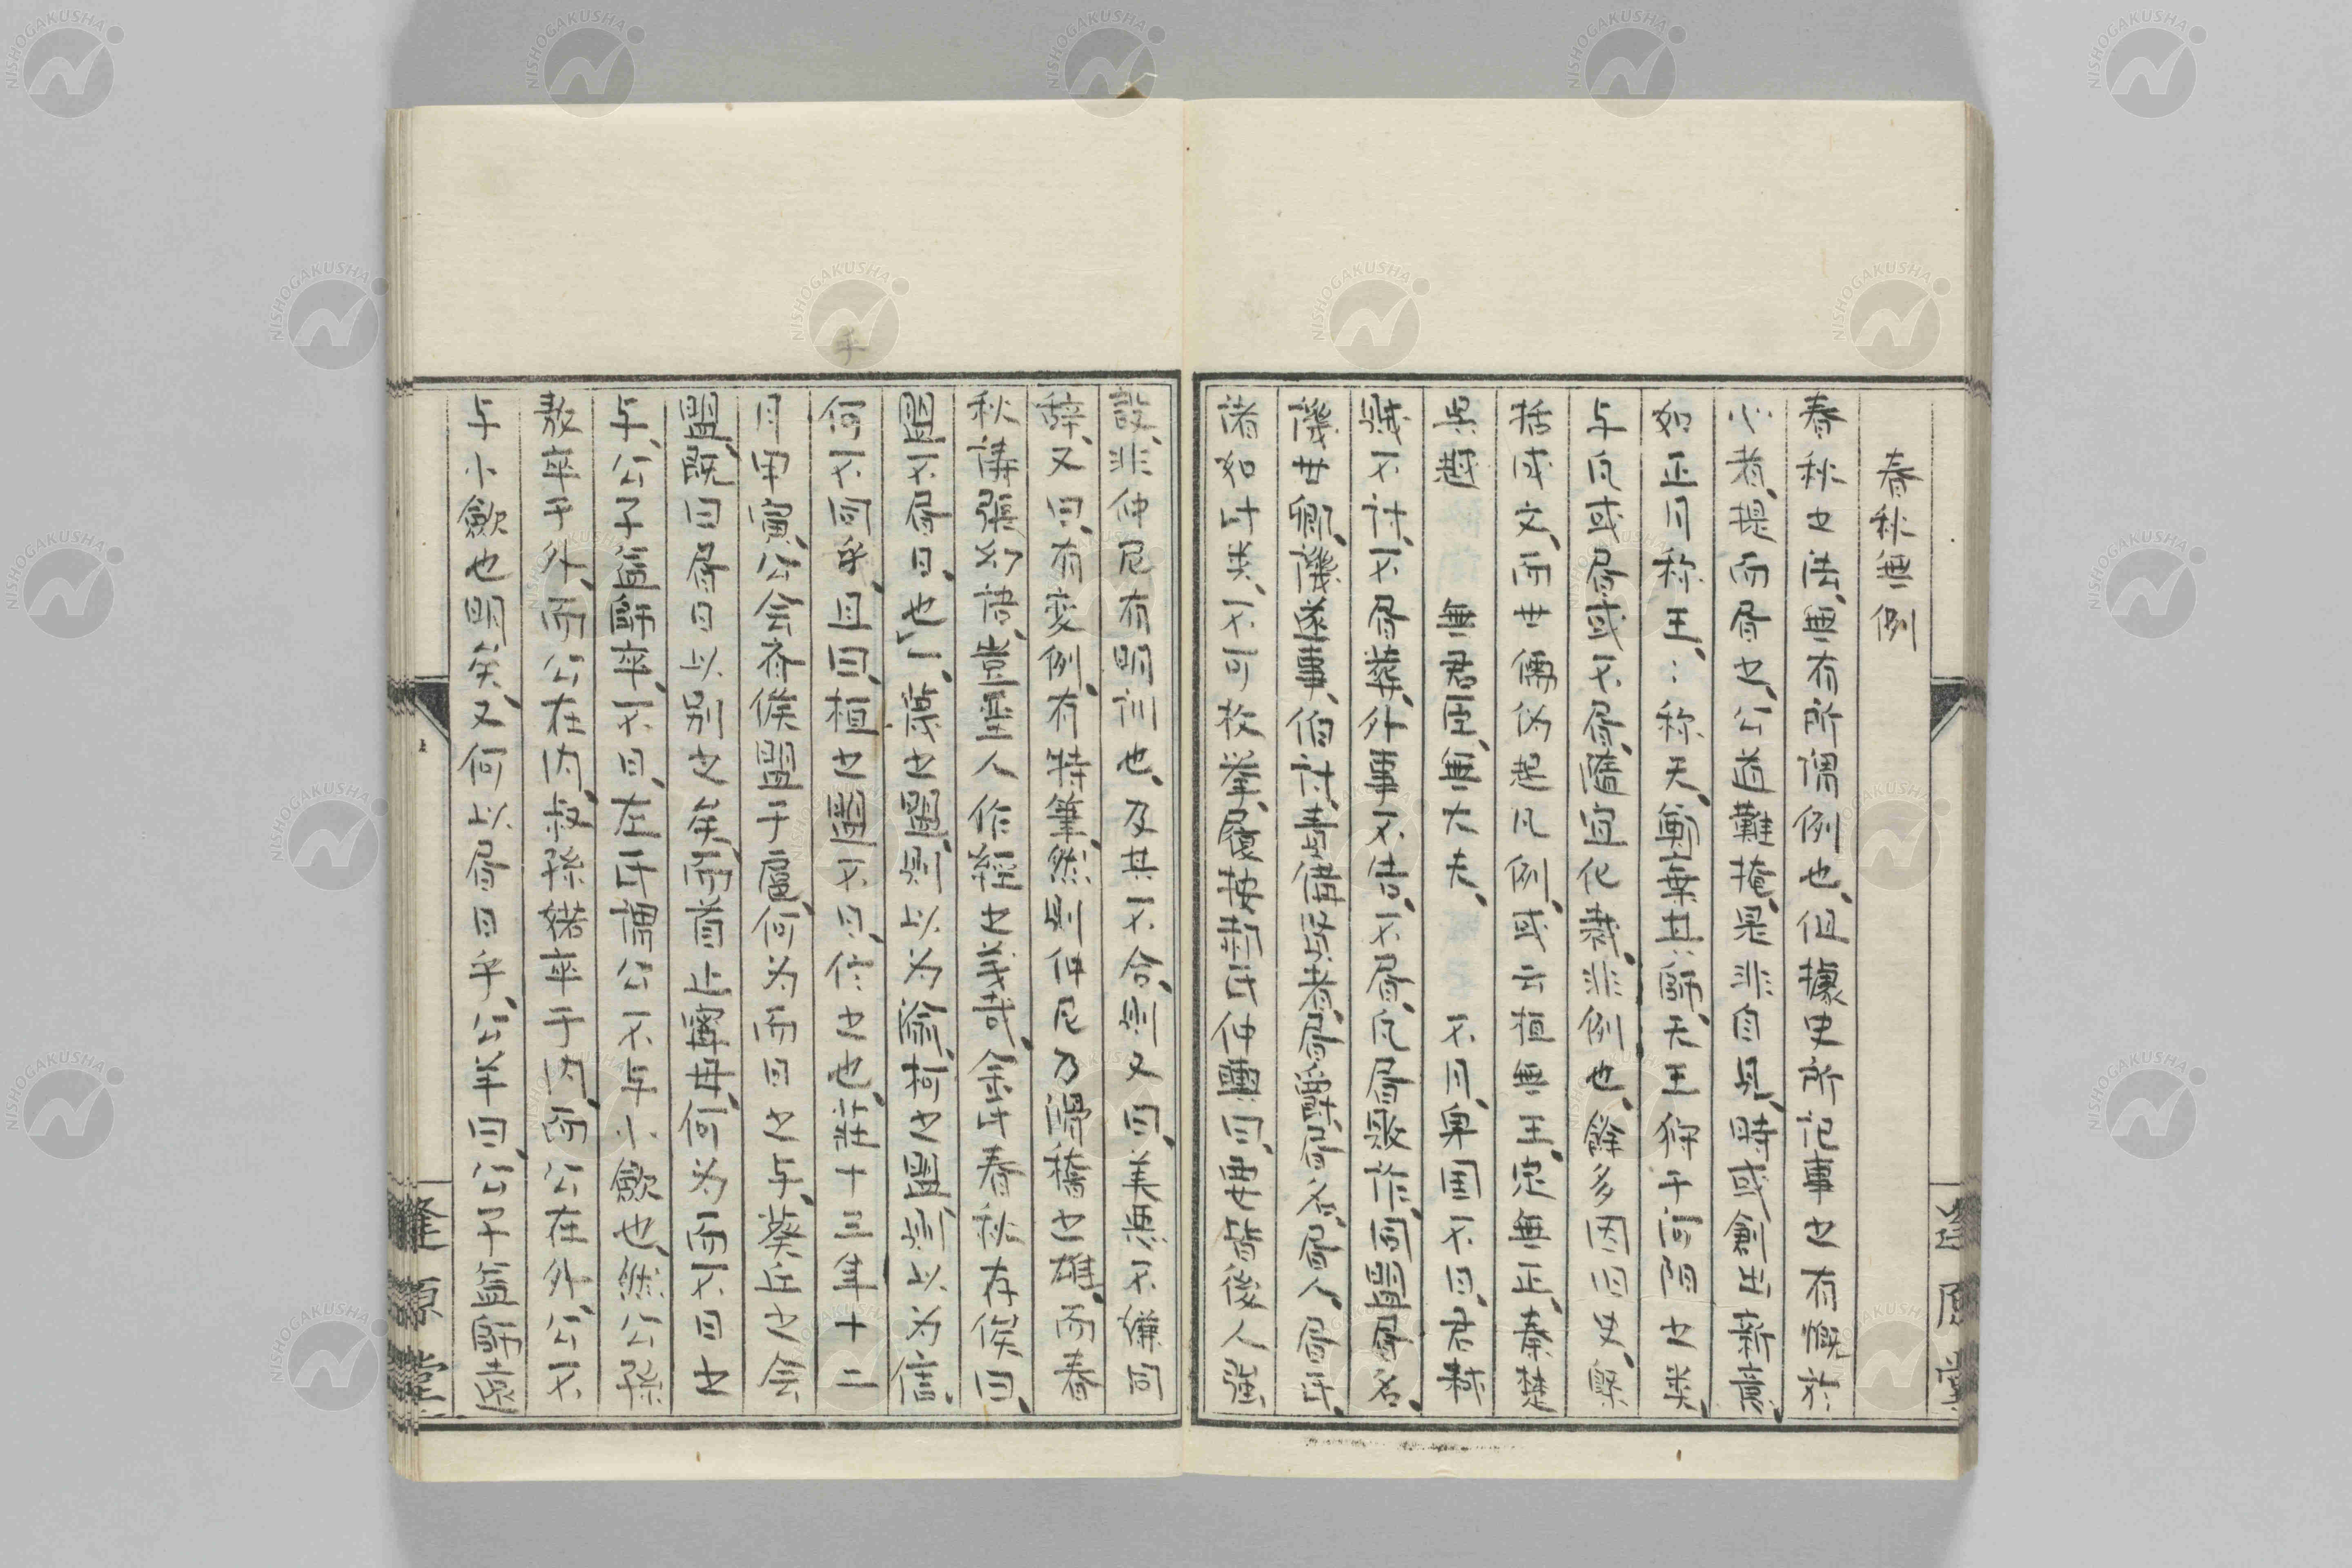 春秋無例
春秋之法、無有所謂例也、但據史所記事之有慨於
心者、提而書之、公道難掩、是非自見、時或創出新意、
如正月称王、王称天、鄭棄其師、天王狩于河陽之類、
与凡或書或不書、隨宜化裁、非例也、餘多因旧史、檃
括成文、而世儒偽起凡例、或云桓無王、定無正、秦楚
呉越無君臣、無大夫、不月、卑国不日、君弑
賊不討、不書葬、外事不告、不書、凡書
譏世卿、譏遂事、書人、書氏、
諸如此类、不可枚挙、仲曰、要皆後人強
設、非仲尼有明訓也、及其不合、則又曰、美悪不嫌同
辞、又曰、有変例、有特筆、然則仲尼乃滑稽之雄、而春
秋譸張幻語、豈聖人作経之義哉、余氏春秋存俟曰、
盟不書日也、一蔑之盟、則以為渝、柯之盟、則以為信、
何不同乎、且曰、桓之盟不日、信之也、荘十三年十二
月甲寅、公会斉侯盟于扈、何為而日之与、葵丘之会
盟、既曰書日以別之矣、而首止甯毋、何為而不日之
与、公子益師卒、不日、左氏謂公不与小歛也、然公孫
敖卒于外、而公在内、叔孫婼卒于内、而公在外、公不
与小歛也明矣、又何以書日乎、公羊曰、公子益師遠
乎
逢原堂